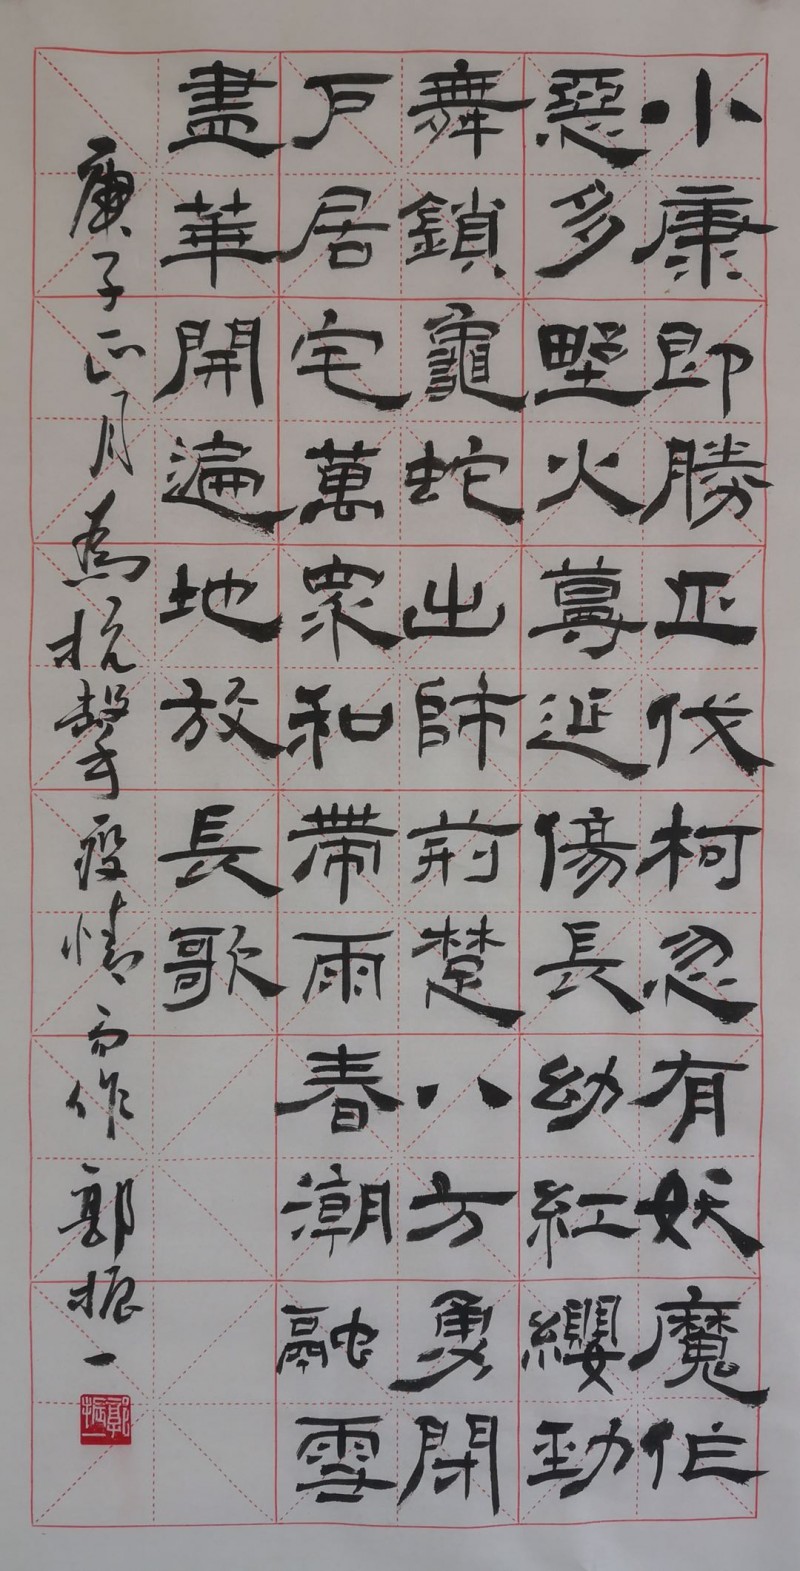 小康即勝正伐柯忽有妖魔作
惡多野火蔓延傷長幼紅纓勁
舞鎖龜蛇出師荊楚八方勇閉
戶居宅萬眾和帶雨春潮融雪
盡華開遍地放長歌
庚子正月為抗擊疫情而作 郭振一
郭振一